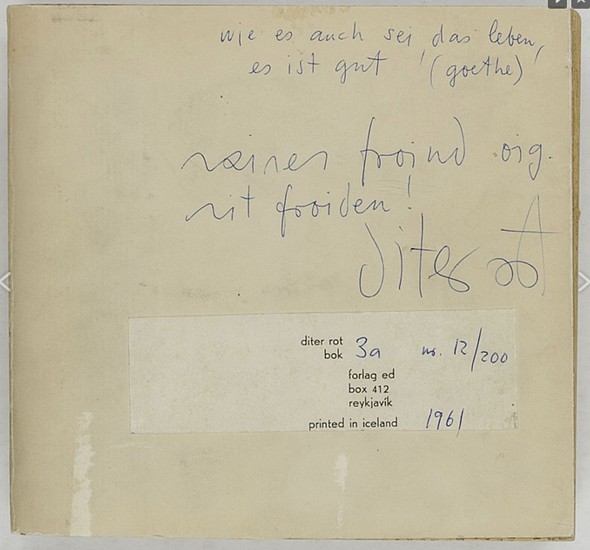 wie es auch sei, das leben,
es ist gut! (goethe)
meinen froind oig.
mit froiden!
diter rot
diter rot
bok 3a no. 12/200
forlag ed
box 412
reykjavík
printed in iceland 1961